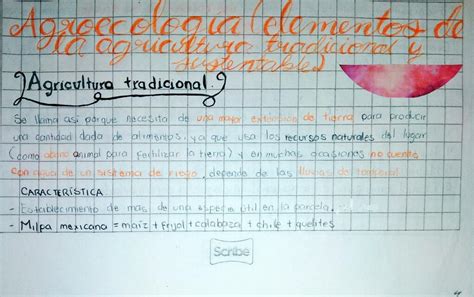 Agroecología (elementos de
la agricultura tradicional y
sustentable)
Agricultura tradicional.
Se llama así porque necesita de una mayor extensión de tierra para producir
una cantidad dada de alimentos, ya que usa los recursos naturales del lugar
(como abono animal para fertilizar la tierra) y en muchas ocasiones no cuenta
con agua de un sistema de riego, depende de las lluvias de temporal
CARACTERÍSTICA
- Establecimiento de mas de una especie útil en la parcela.
- Milpa mexicana = maíz + frijol + calabaza + chile + quelites
Scribe